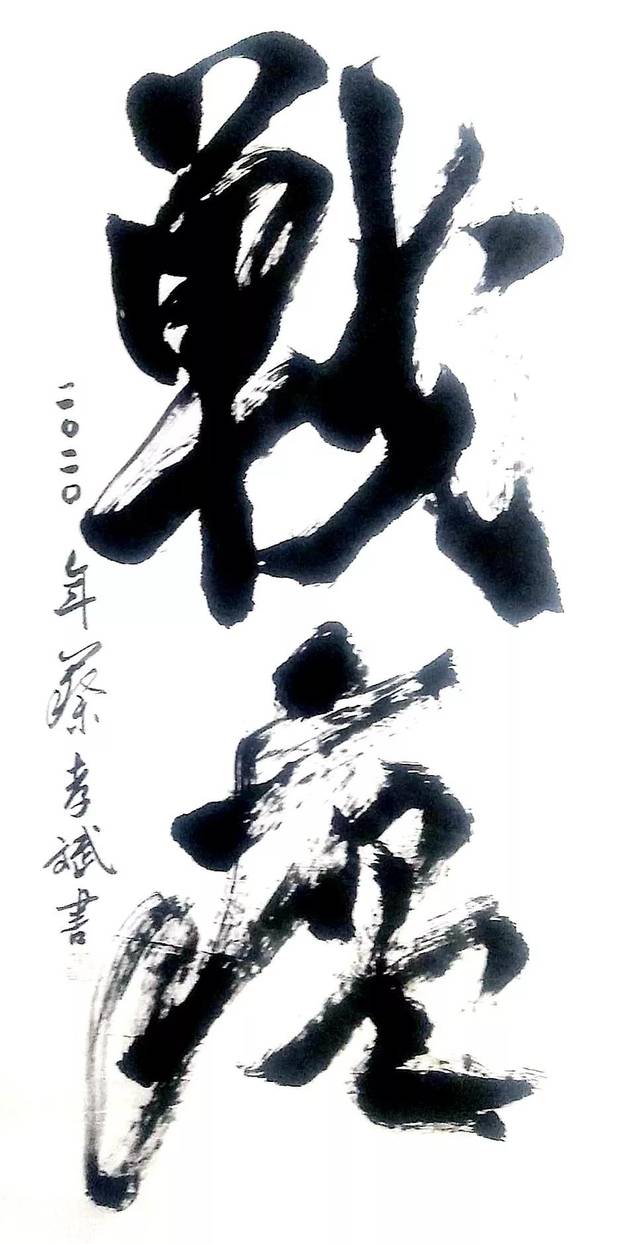 戰疫
二〇二〇年蔡孝斌書